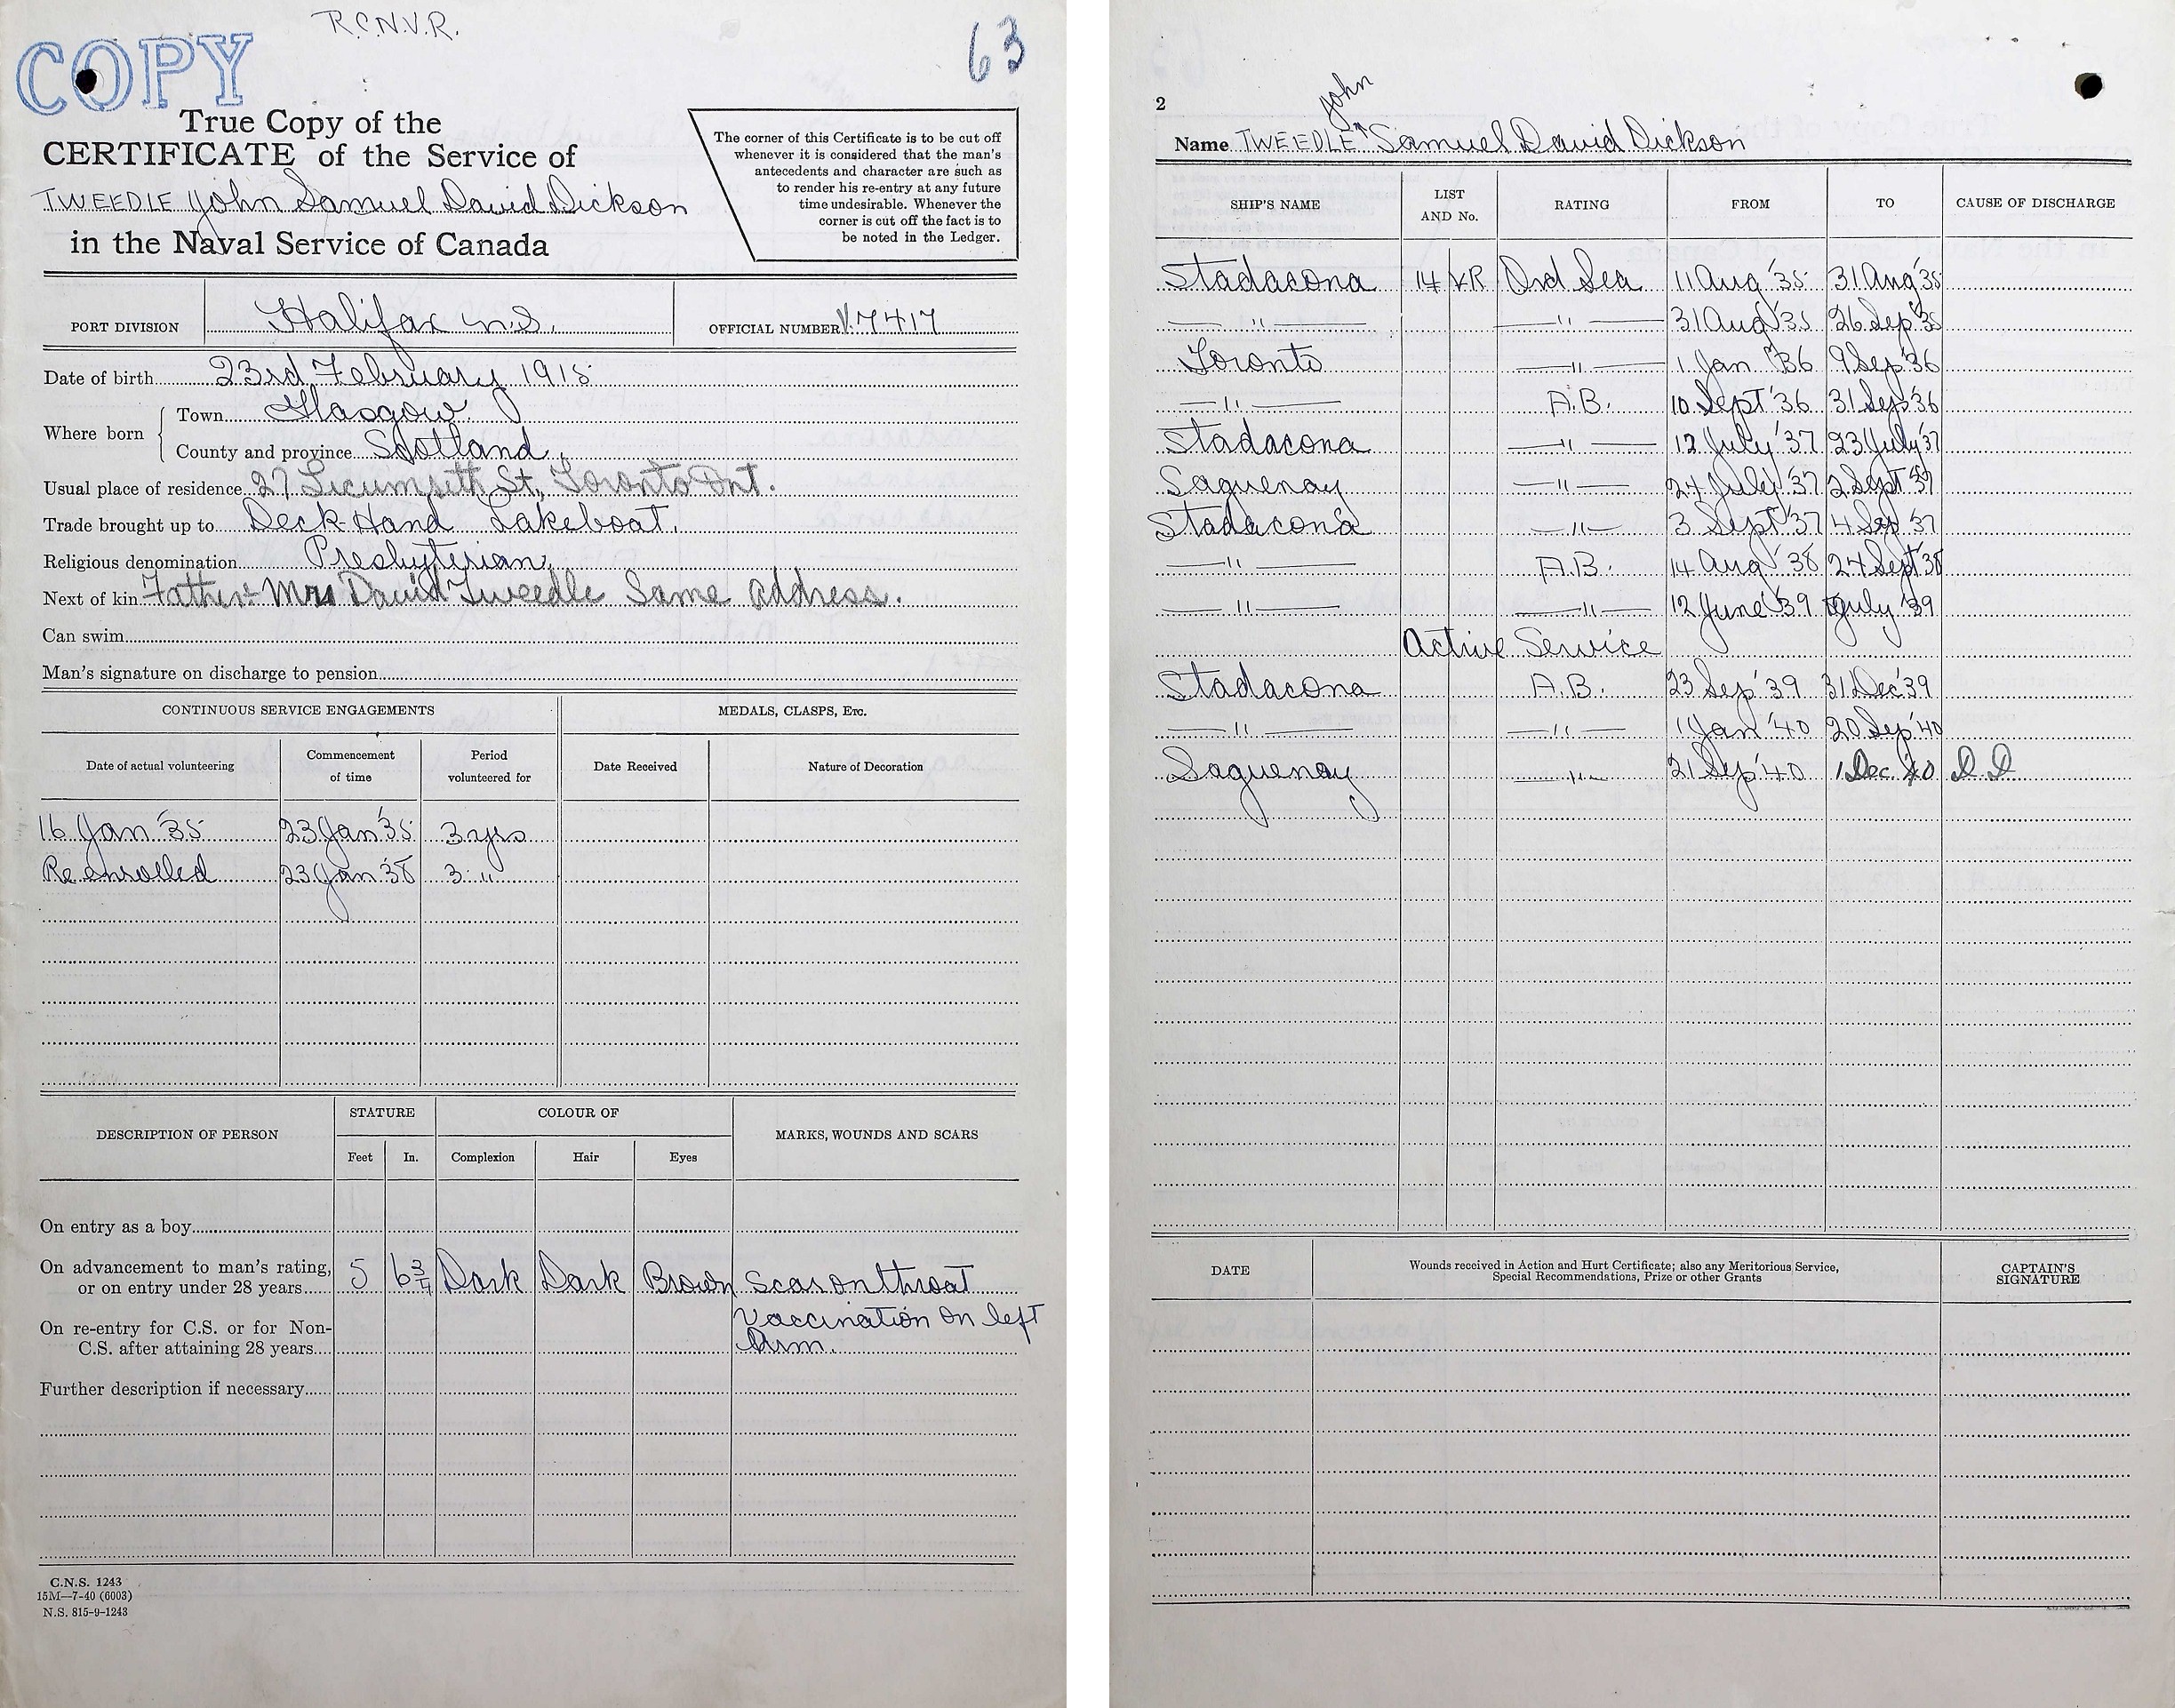 R.C.N.V.R.
COPY
63
True Copy of the
CERTIFICATE of the Service of
TWEEDLE John Samuel David Dickson
in the Naval Service of Canada
The corner of this Certificate is to be cut off
whenever it is considered that the man's
antecedents and character are such as
to render his re-entry at any future
time undesirable. Whenever the
corner is cut off the fact is to
be noted in the Ledger.
PORT DIVISION Halifax N.S. OFFICIAL NUMBER V.7417
Date of birth 23rd February 1915
Where born
Town Glasgow
County and province Scotland
Usual place of residence 27 Tecumseth St., Toronto Ont.
Trade brought up to Deck Hand Lakeboat.
Religious denomination Presbyterian
Next of kin Father - Mrs David Tweedle Same Address.
Can swim
Man's signature on discharge to pension
CONTINUOUS SERVICE ENGAGEMENTS MEDALS, CLASPS, ETC.
Date of actual volunteering Commencement of time Period volunteered for Date Received Nature of Decoration
16 Jan '35 23 Jan '35 3 yrs
Re enrolled 23 Jan '38 3 "
DESCRIPTION OF PERSON STATURE COLOUR OF MARKS, WOUNDS AND SCARS
Feet In. Complexion Hair Eyes
On entry as a boy
On advancement to man's rating,
or on entry under 28 years 5 6 3/4 Dark Dark Brown Scar on throat
Vaccination on left
On re-entry for C.S. or for Non-
C.S. after attaining 28 years Arm.
Further description if necessary
C.N.S. 1243
15M—7-40 (6003)
N.S. 815-9-1243
2
John
Name TWEEDLE Samuel David Dickson
SHIP'S NAME LIST AND No. RATING FROM TO CAUSE OF DISCHARGE
Stadacona 14 VR Ord Sea 11 Aug '35 31 Aug '35
" " 31 Aug '35 26 Sep '35
Toronto " 1 Jan '36 9 Sep '36
" A.B. 10 Sept '36 31 Sep '36
Stadacona " 12 July '37 23 July '37
Saguenay " 24 July '37 2 Sept '37
Stadacona " 3 Sept '37 4 Sep '37
" A.B. 14 Aug '38 24 Sept '38
" " 12 June '39 July '39
Active Service
Stadacona A.B. 23 Sep '39 31 Dec '39
" " 1 Jan '40 20 Sep '40
Saguenay " 21 Sep '40 1 Dec. '40 D.D.
DATE Wounds received in Action and Hurt Certificate; also any Meritorious Service, CAPTAIN'S
Special Recommendations, Prize or other Grants SIGNATURE